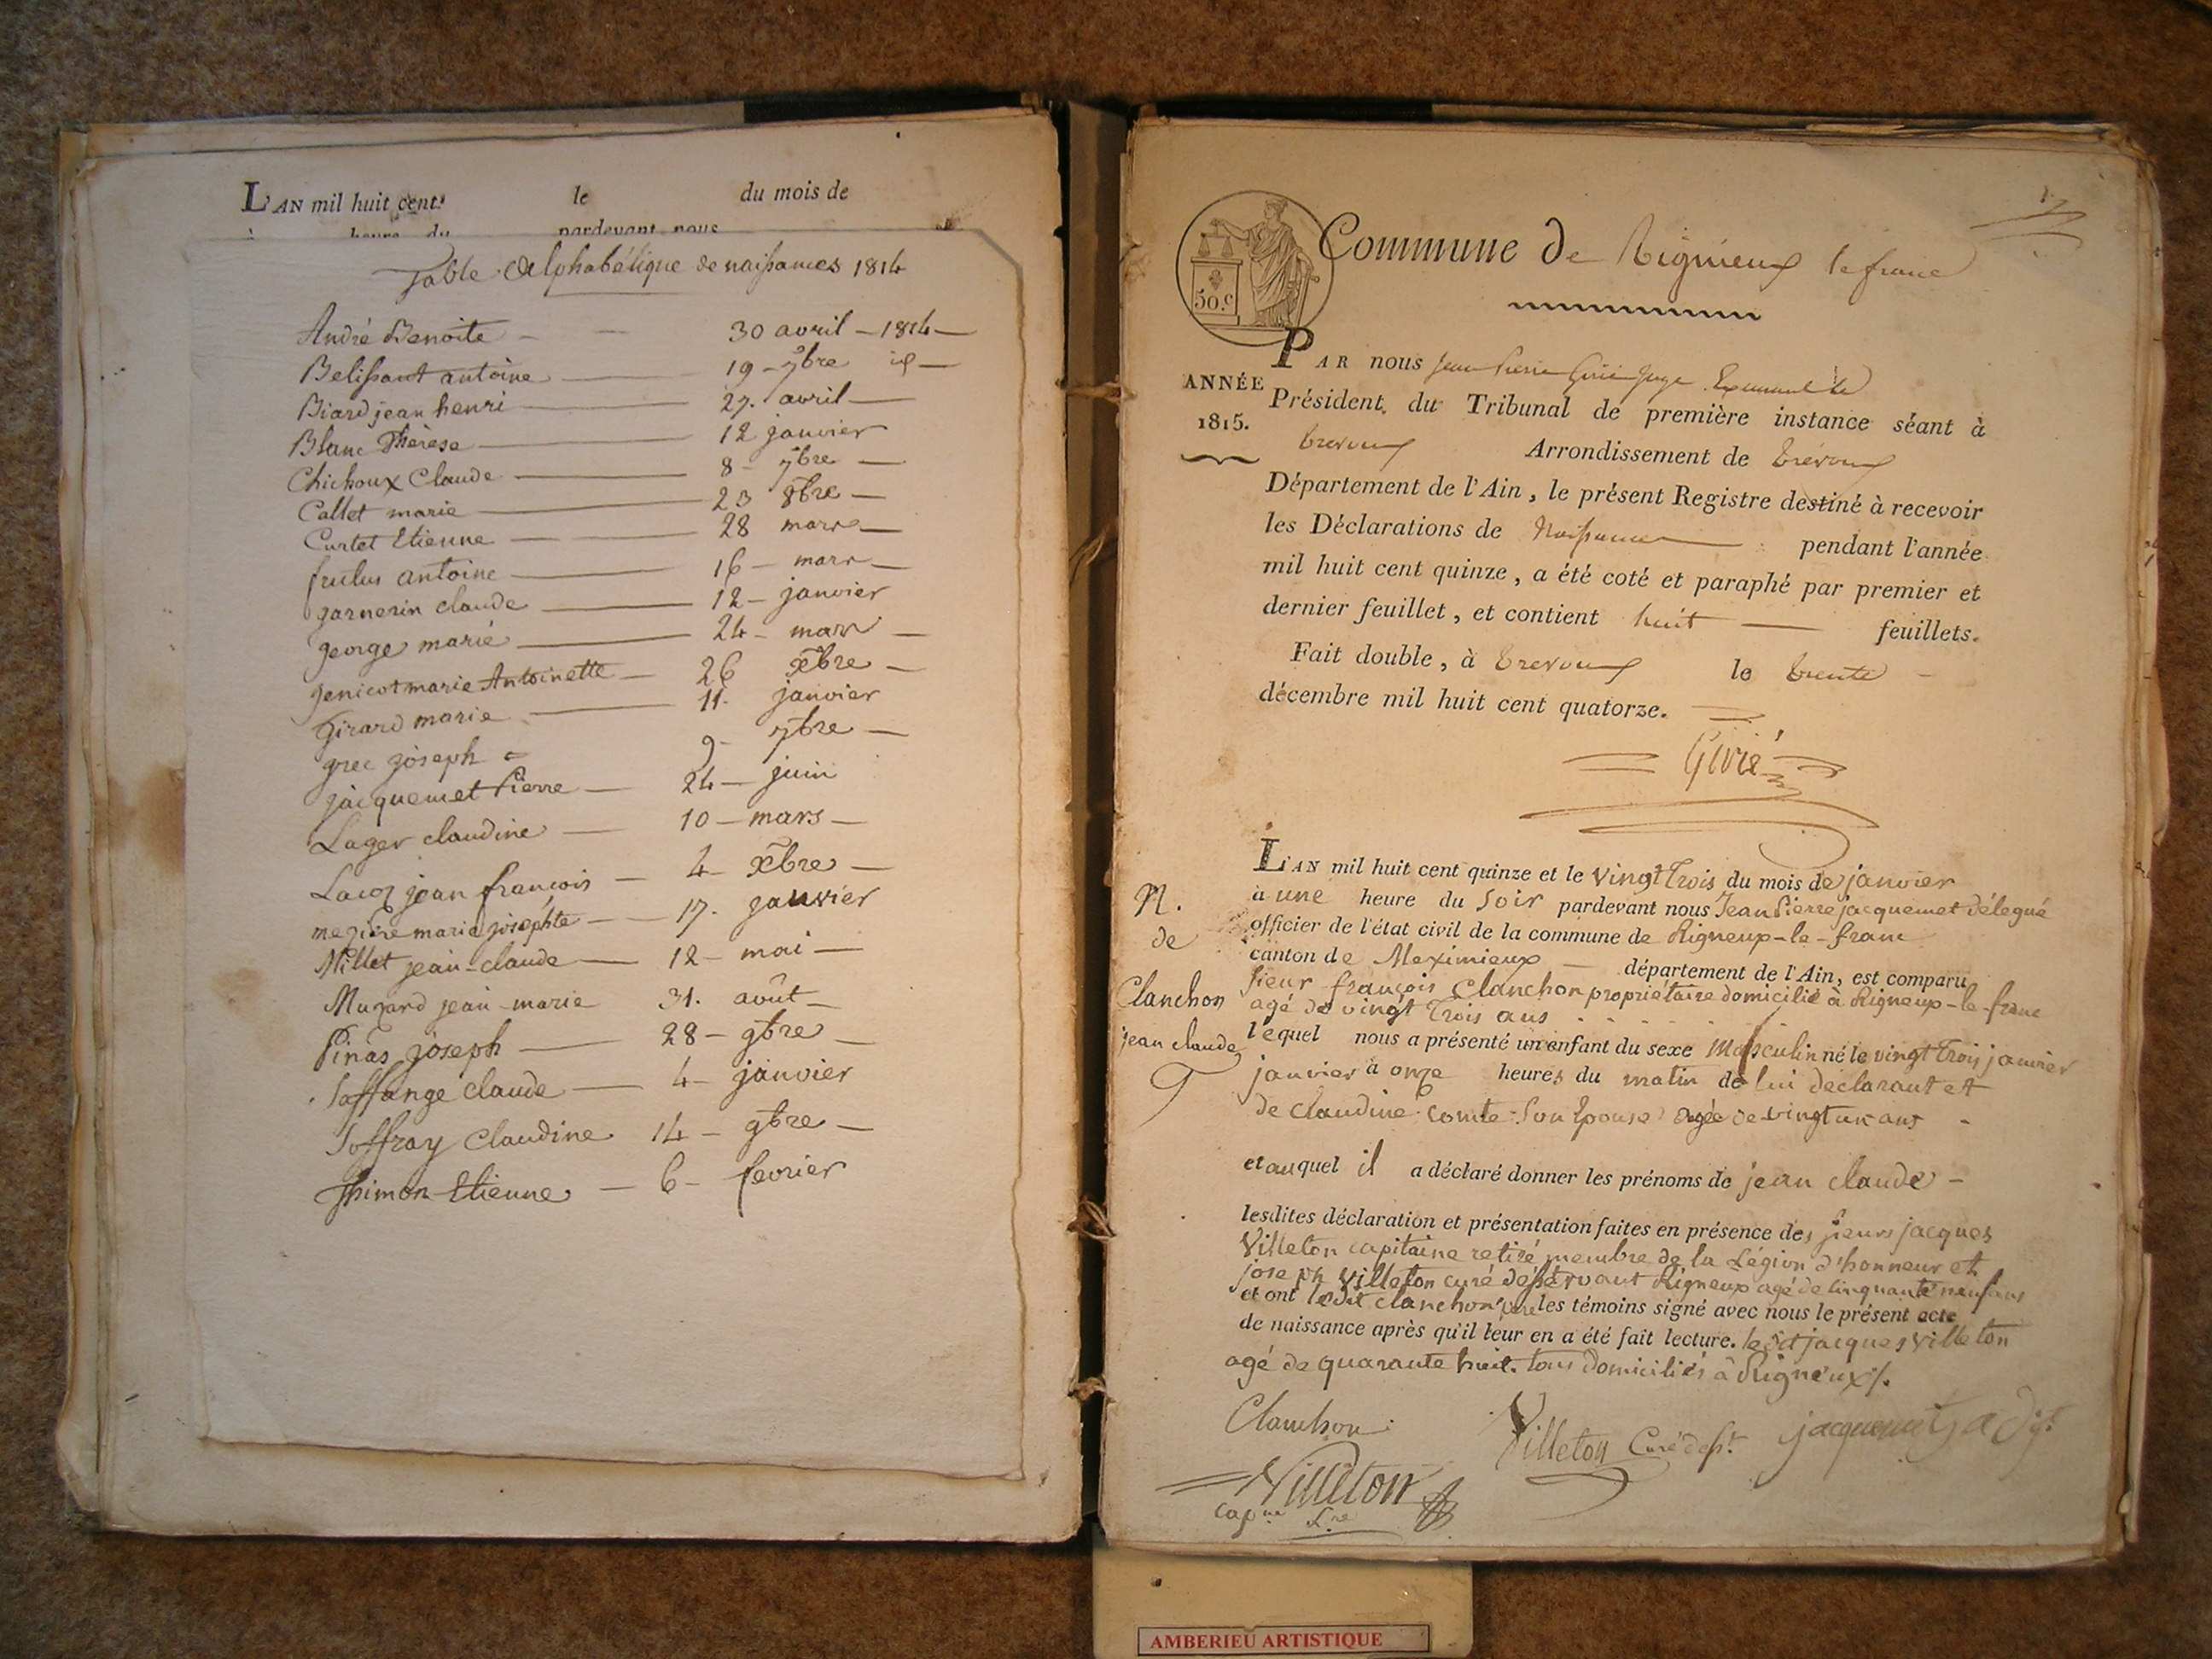 L'AN mil huit cent le du mois de
heure du pardevant nous
Table Alphabétique de naissances 1814
André Benoite - 30 avril - 1814 -
Belissant antoine - 19 - 7bre id -
Biard jean henri - 27. avril -
Blanc Thérèse - 12 janvier
Chichoux Claude - 8 - 7bre -
Callet marie - 23 8bre -
Curtet Etienne - 28 mars -
frutus antoine - 16 - mars -
garnerin claude - 12 - janvier
george marie - 24 - mars -
genicot marie Antoinette - 26 xbre -
girard marie - 11. janvier
grec joseph - 9 - 7bre -
jacquemet Pierre - 24 - juin
Lager claudine - 10 - mars -
Lacoq jean françois - 4 - xbre -
mezière marie josephte - 17. janvier
Millet jean-claude - 12 - mai -
Mugard jean-marie 31. août -
Pinâs joseph - 28 - 9bre -
Soffange claude - 4 - janvier
Soffray Claudine 14 - 9bre -
Thimon Etienne - 6 - fevrier
50.c
Commune de Rignieux le franc
PAR nous Jean Pierre Givié juge
ANNÉE
1815.
Président du Tribunal de première instance séant à
trevoux Arrondissement de trévoux
Département de l'Ain, le présent Registre destiné à recevoir
les Déclarations de Naissances pendant l'année
mil huit cent quinze, a été coté et paraphé par premier et
dernier feuillet, et contient huit feuillets.
Fait double, à trevoux le trente
décembre mil huit cent quatorze.
Givié
L'AN mil huit cent quinze et le vingt trois du mois de janvier
à une heure du soir pardevant nous Jean Pierre jacquemet délegué
officier de l'état civil de la commune de Rigneux-le-franc
canton de Meximieux département de l'Ain, est comparu
sieur françois Clanchon propriétaire domicilié à Rigneux-le-franc
agé de vingt trois ans
N.
de
Clanchon
jean claude
lequel nous a présenté un enfant du sexe Masculin né le vingt trois janvier
janvier à onze heures du matin de lui déclarant et
de claudine comte son Epouse agée de vingt un ans -
et auquel il a déclaré donner les prénoms de jean claude -
lesdites déclaration et présentation faites en présence des sieurs jacques
Villeton capitaine retiré membre de la Légion d'honneur et
joseph Villeton curé desservant Rigneux agé de cinquante neuf ans
et ont ledit clanchon père les témoins signé avec nous le présent acte
de naissance après qu'il leur en a été fait lecture. ledit jacques Villeton
agé de quarante huit. tous domiciliés à Rigneux ./.
Clanchon
Villeton Curé desst. jacquemet adjt
Villeton
capne
AMBERIEU ARTISTIQUE